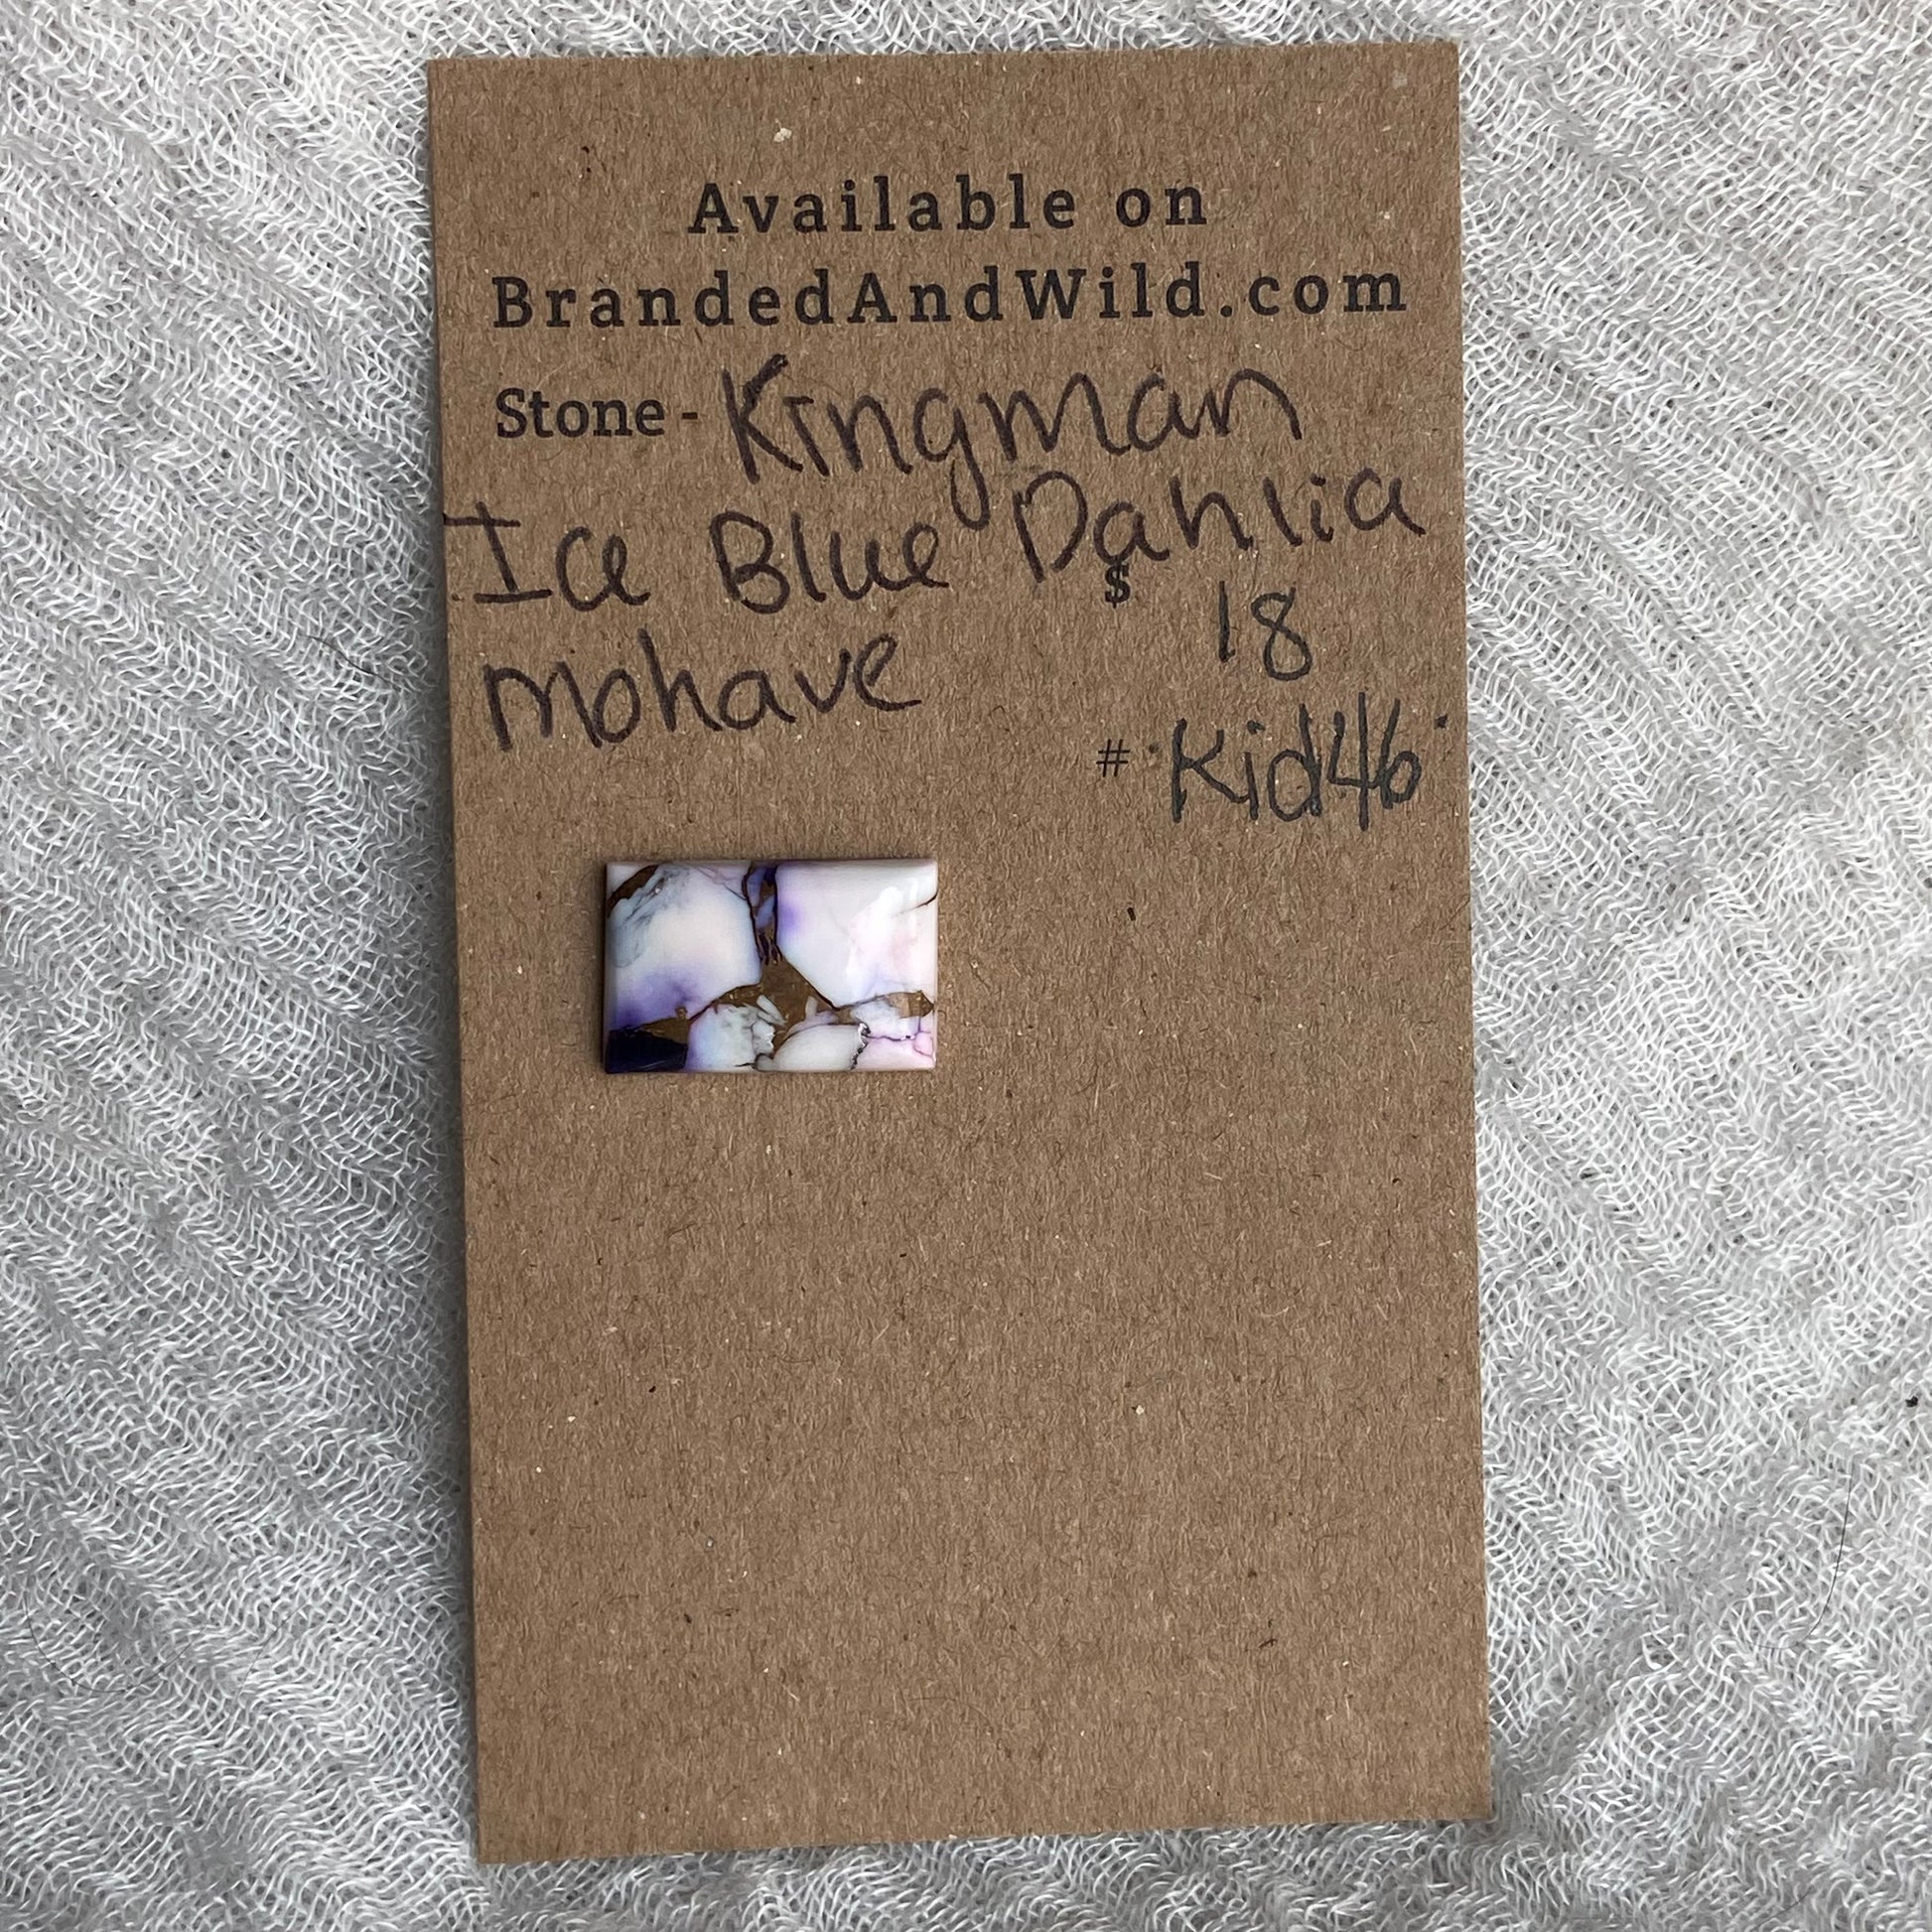 Available on
BrandedAndWild.com
Stone - Kingman
Ice Blue Dahlia
$ 18
Mohave
# Kid46